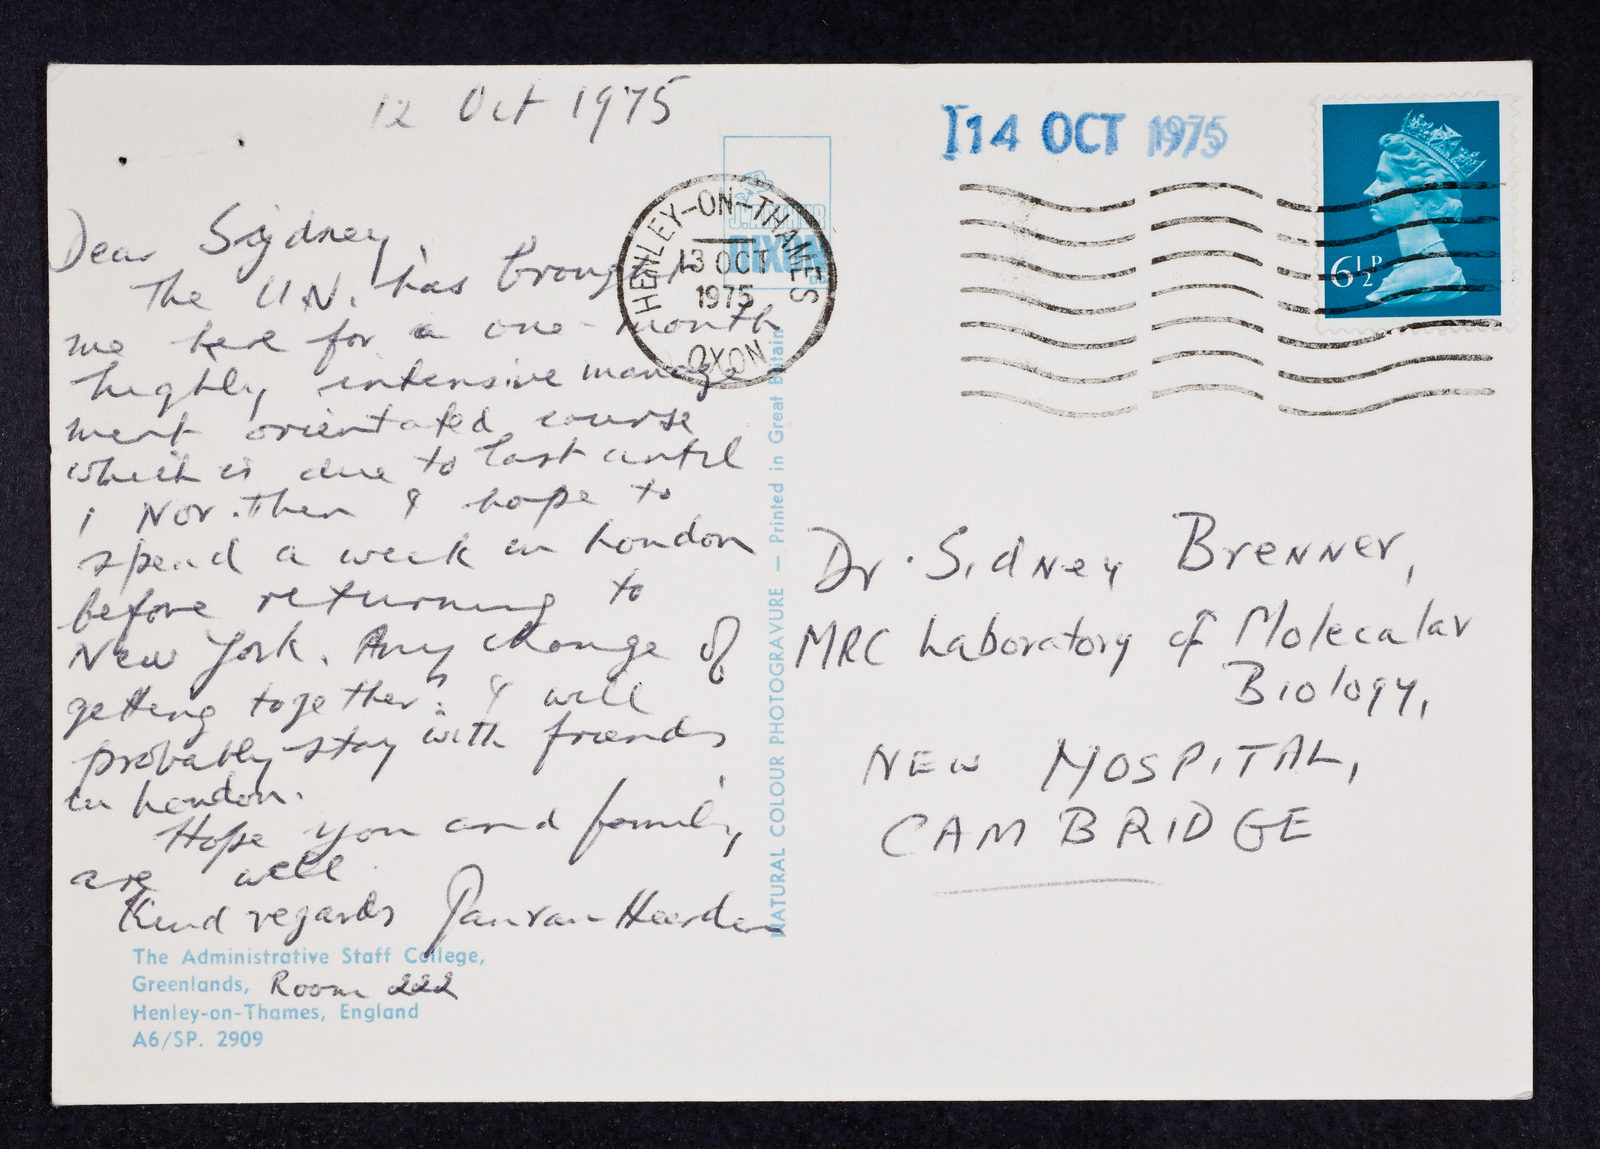 12 Oct 1975
Dear Sydney,
The U.N. has brought
me here for a one-month
highly intensive manage
ment orientated course
which is due to last until
1 Nov. Then I hope to
spend a week in London
before returning to
New York. Any change of
getting together: I will
probably stay with friends
in London.
Hope you and family
are well.
Kind regards Jan van Heerden
The Administrative Staff College,
Greenlands, Room 222
Henley-on-Thames, England
A6/SP. 2909
NATURAL COLOUR PHOTOGRAVURE — Printed in Great Britain
DIXON
HENLEY-ON-THAMES
13 OCT
1975
OXON
14 OCT 1975
6½P
Dr. Sidney Brenner,
MRC Laboratory of Molecular
Biology,
NEW HOSPITAL,
CAMBRIDGE